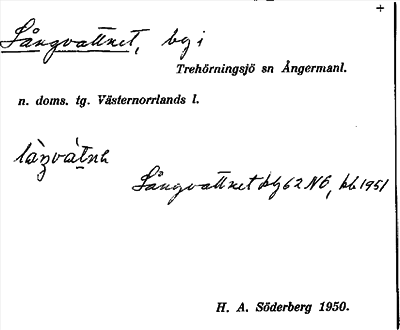 Långvattnet, by i
Trehörningsjö sn Ångermanl.
n. doms. tg. Västernorrlands l.
Långvattnet bg 62 N6, kb 1951
H. A. Söderberg 1950.